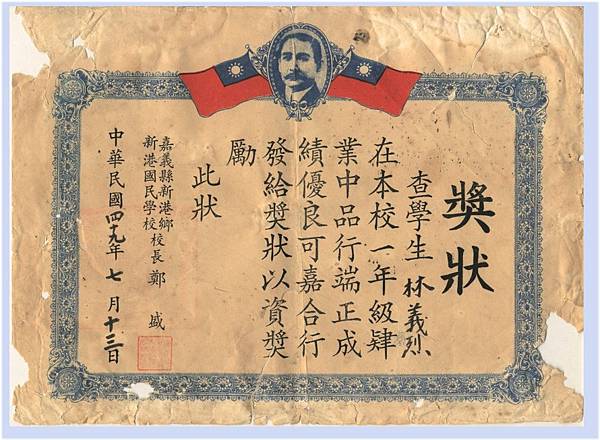 獎狀
查學生林義烈
在本校一年級肄
業中品行端正成
績優良可嘉合行
發給獎狀以資獎
勵
此狀
嘉義縣新港鄉
新港國民學校
校長鄭盛
中華民國四十九年七月十三日